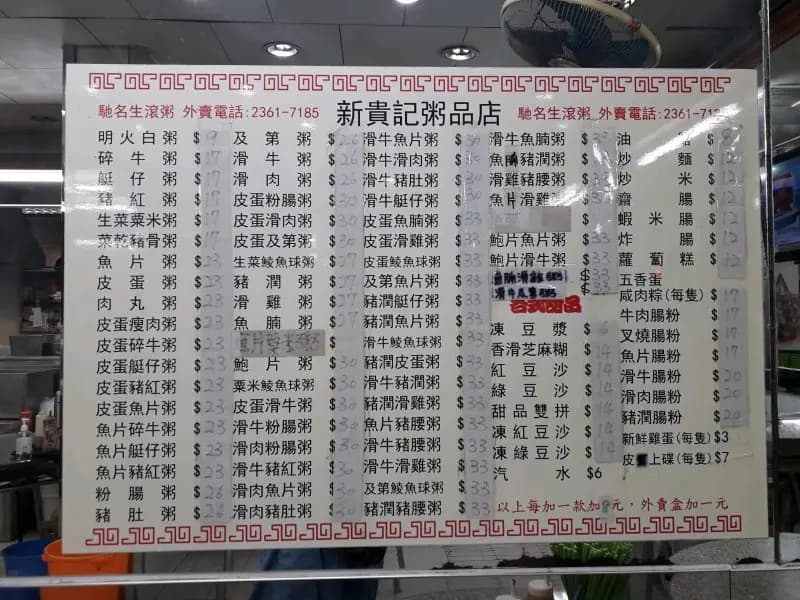 新貴記粥品店
馳名生滾粥 外賣電話:2361-7185
馳名生滾粥 外賣電話:2361-71
明火白粥 $9
碎牛粥 $17
艇仔粥 $17
豬紅粥 $17
生菜粟米粥 $17
菜乾豬骨粥 $17
魚片粥 $23
皮蛋粥 $23
肉丸粥 $23
皮蛋瘦肉粥 $23
皮蛋碎牛粥 $23
皮蛋艇仔粥 $23
皮蛋豬紅粥 $23
皮蛋魚片粥 $23
魚片碎牛粥 $23
魚片艇仔粥 $23
魚片豬紅粥 $23
粉腸粥 $26
豬肚粥 $
及第粥 $26
滑牛粥 $26
滑肉粥 $26
皮蛋粉腸粥 $30
皮蛋滑肉粥 $30
皮蛋及第粥 $30
生菜鯪魚球粥 $27
豬潤粥 $27
滑雞粥 $27
魚腩粥 $27
鮑片粥 $30
粟米鯪魚球粥 $30
皮蛋滑牛粥 $30
滑牛粉腸粥 $30
滑肉粉腸粥 $30
滑牛豬紅粥 $30
滑肉魚片粥 $30
滑肉豬肚粥 $30
滑牛魚片粥 $30
滑牛滑肉粥 $30
滑牛豬肚粥 $30
滑牛艇仔粥 $30
皮蛋魚腩粥 $33
皮蛋滑雞粥 $33
皮蛋鯪魚球粥 $33
及第魚片粥 $33
豬潤艇仔粥 $33
豬潤魚片粥 $33
滑牛鯪魚球粥 $33
豬潤皮蛋粥 $33
滑牛豬潤粥 $33
豬潤滑雞粥 $33
魚片豬腰粥 $33
滑牛豬腰粥 $33
滑牛滑雞粥 $33
及第鯪魚球粥 $33
豬潤豬腰粥 $33
滑牛魚腩粥 $33
魚腩豬潤粥 $
滑雞豬腰粥 $33
魚片滑雞 $33
鮑片魚片粥 $33
鮑片滑牛粥 $33
凍豆漿 $6
香滑芝麻糊 $14
紅豆沙 $14
綠豆沙 $14
甜品雙拼 $14
凍紅豆沙 $14
凍綠豆沙 $14
汽水 $6
油 $
炒麵 $12
炒米 $12
齋腸 $12
蝦米腸 $12
炸腸 $12
蘿蔔糕 $12
五香蛋
咸肉粽(每隻) $17
牛肉腸粉 $17
叉燒腸粉 $17
魚片腸粉 $17
滑牛腸粉 $20
滑肉腸粉 $20
豬潤腸粉 $20
新鮮雞蛋(每隻) $3
皮 上碟(每隻) $7
以上每加一款加8元，外賣盒加一元